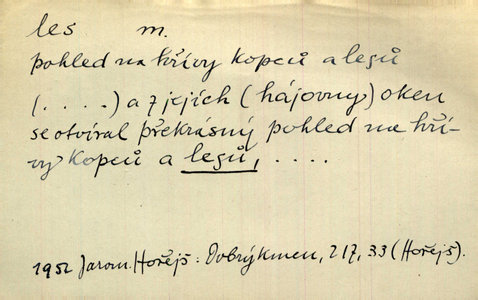 les m.
pohled na hřívy kopců a lesů
(. . . .) a z jejich (hájovny) oken
se otvíral překrásný pohled na hří-
vy kopců a lesů, . . . .
1952 Jarom. Hořejš: Dobrý kmen, 217, 33 (Hořejš).